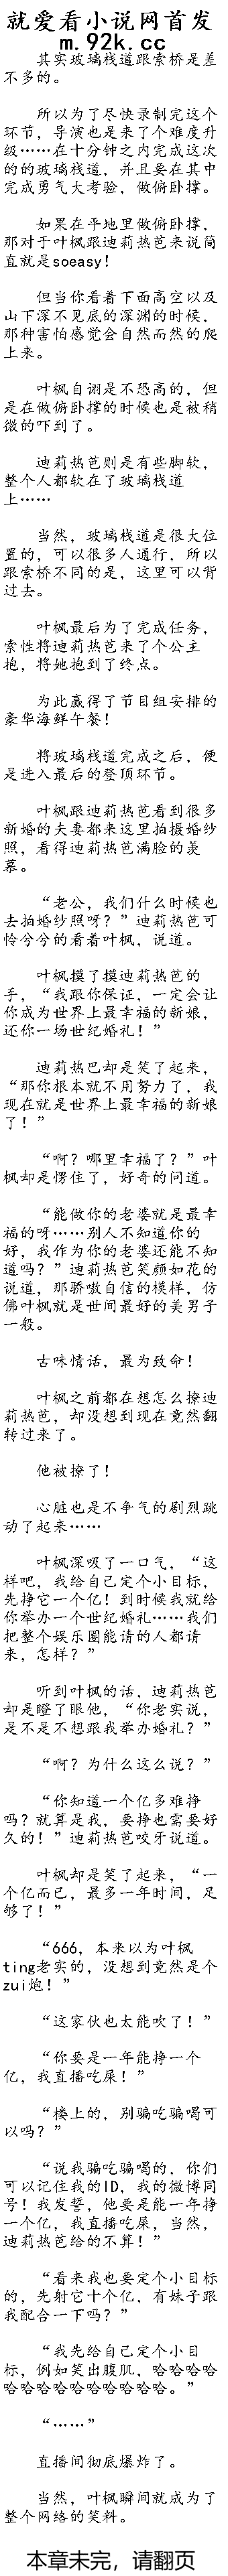 就爱看小说网首发
m.92k.cc
其实玻璃栈道跟索桥是差
不多的。
所以为了尽快录制完这个
环节，导演也是来了个难度升
级……在十分钟之内完成这次
的的玻璃栈道，并且要在其中
完成勇气大考验，做俯卧撑。
如果在平地里做俯卧撑，
那对于叶枫跟迪莉热芭来说简
直就是soeasy！
但当你看着下面高空以及
山下深不见底的深渊的时候，
那种害怕感觉会自然而然的爬
上来。
叶枫自诩是不恐高的，但
是在做俯卧撑的时候也是被稍
微的吓到了。
迪莉热芭则是有些脚软，
整个人都软在了玻璃栈道
上……
当然，玻璃栈道是很大位
置的，可以很多人通行，所以
跟索桥不同的是，这里可以背
过去。
叶枫最后为了完成任务，
索性将迪莉热芭来了个公主
抱，将她抱到了终点。
为此赢得了节目组安排的
豪华海鲜午餐！
将玻璃栈道完成之后，便
是进入最后的登顶环节。
叶枫跟迪莉热芭看到很多
新婚的夫妻都来这里拍摄婚纱
照，看得迪莉热芭满脸的羡
慕。
“老公，我们什么时候也
去拍婚纱照呀？”迪莉热芭可
怜兮兮的看着叶枫，说道。
叶枫摸了摸迪莉热芭的
手，“我跟你保证，一定会让
你成为世界上最幸福的新娘，
还你一场世纪婚礼！”
迪莉热巴却是笑了起来，
“那你根本就不用努力了，我
现在就是世界上最幸福的新娘
了！”
“啊？哪里幸福了？”叶
枫却是愣住了，好奇的问道。
“能做你的老婆就是最幸
福的呀……别人不知道你的
好，我作为你的老婆还能不知
道吗？”迪莉热芭笑颜如花的
说道，那骄傲自信的模样，仿
佛叶枫就是世间最好的美男子
一般。
古味情话，最为致命！
叶枫之前都在想怎么撩迪
莉热芭，却没想到现在竟然翻
转过来了。
他被撩了！
心脏也是不争气的剧烈跳
动了起来……
叶枫深吸了一口气，“这
样吧，我给自己定个小目标，
先挣它一个亿！到时候我就给
你举办一个世纪婚礼……我们
把整个娱乐圈能请的人都请
来，怎样？”
听到叶枫的话，迪莉热芭
却是瞪了眼他，“你老实说，
是不是不想跟我举办婚礼？”
“啊？为什么这么说？”
“你知道一个亿多难挣
吗？就算是我，要挣也需要好
久的！”迪莉热芭咬牙说道。
叶枫却是笑了起来，“一
个亿而已，最多一年时间，足
够了！”
“666，本来以为叶枫
ting老实的，没想到竟然是个
zui炮！”
“这家伙也太能吹了！”
“你要是一年能挣一个
亿，我直播吃屎！”
“楼上的，别骗吃骗喝可
以吗？”
“说我骗吃骗喝的，你们
可以记住我的ID，我的微博同
号！我发誓，他要是能一年挣
一个亿，我直播吃屎，当然，
迪莉热芭给的不算！”
“看来我也要定个小目标
的，先射它十个亿，有妹子跟
我配合一下吗？”
“我先给自己定个小目
标，例如笑出腹肌，哈哈哈哈
哈哈哈哈哈哈哈哈哈哈。”
“……”
直播间彻底爆炸了。
当然，叶枫瞬间就成为了
整个网络的笑料。
本章未完，请翻页